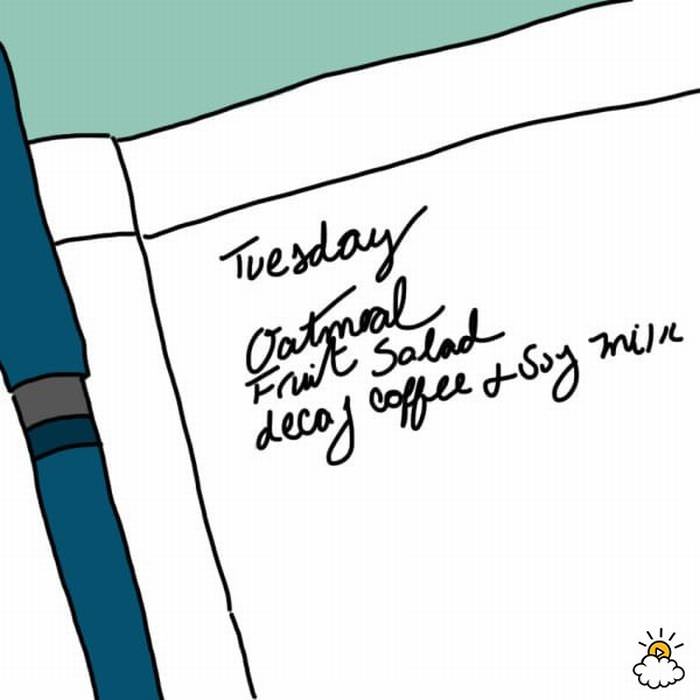 Tuesday
Oatmeal
Fruit Salad
decaf coffee + Soy milk